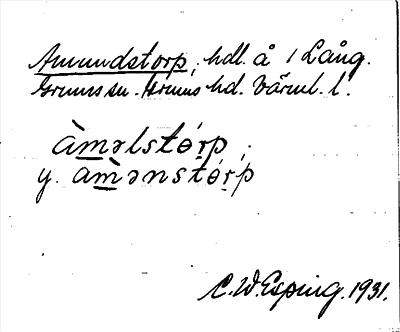 Amundstorp, hdl. å 1 Lång.
Grums sn. Grums hd. Värml. l.
àməlstórp,
y. àmənstórp
C.W.Esping. 1931.